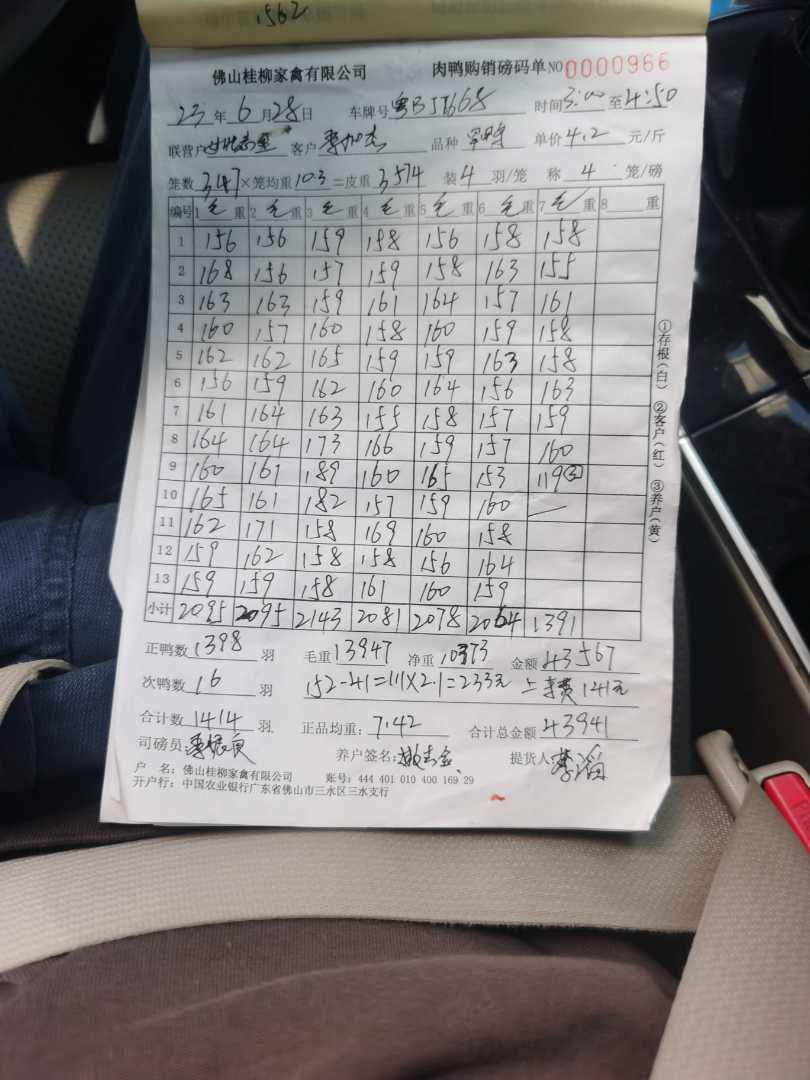 1562
佛山桂柳家禽有限公司 肉鸭购销磅码单 NO 0000966
23年6月28日 车牌号 粤BJ1668 时间3:00至4:50
联营户 客户 品种 单价4.2元/斤
笼数347×笼均重10.3=皮重3574 装4羽/笼 称4笼/磅
编号 1毛重 2毛重 3毛重 4毛重 5毛重 6毛重 7毛重 8 重
1 156 156 159 158 156 158 158
2 168 156 157 159 158 163 155
3 163 163 159 161 164 157 161
4 160 157 160 158 160 159 158
5 162 162 165 159 159 163 158
6 156 159 162 160 164 156 163
7 161 164 163 155 158 157 159
8 164 164 173 166 159 157 160
9 160 161 189 160 165 153 119③
10 165 161 182 157 159 160 —
11 162 171 158 169 160 158
12 159 162 158 158 156 164
13 159 159 158 161 160 159
小计 2095 2095 2143 2081 2078 2064 1391
正鸭数1398羽 毛重13947 净重10373 金额43567
次鸭数16羽 152-41=111×2.1=233元 上车费141元
合计数1414羽 正品均重:7.42 合计总金额43941
司磅员: 养户签名: 提货人:
户 名:佛山桂柳家禽有限公司 账号:444 401 010 400 169 29
开户行:中国农业银行广东省佛山市三水区三水支行
①存根(白) ②客户(红) ③养户(黄)